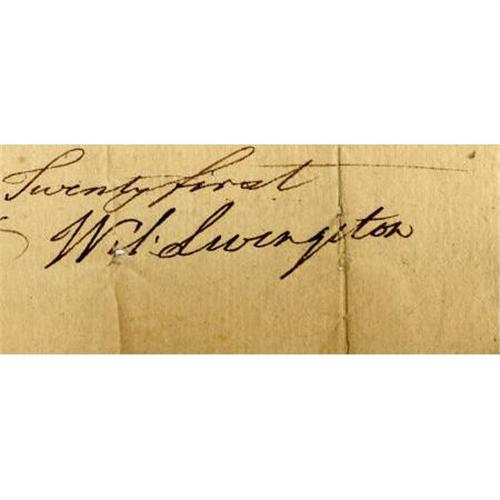 Twenty first
Wil: Livingston